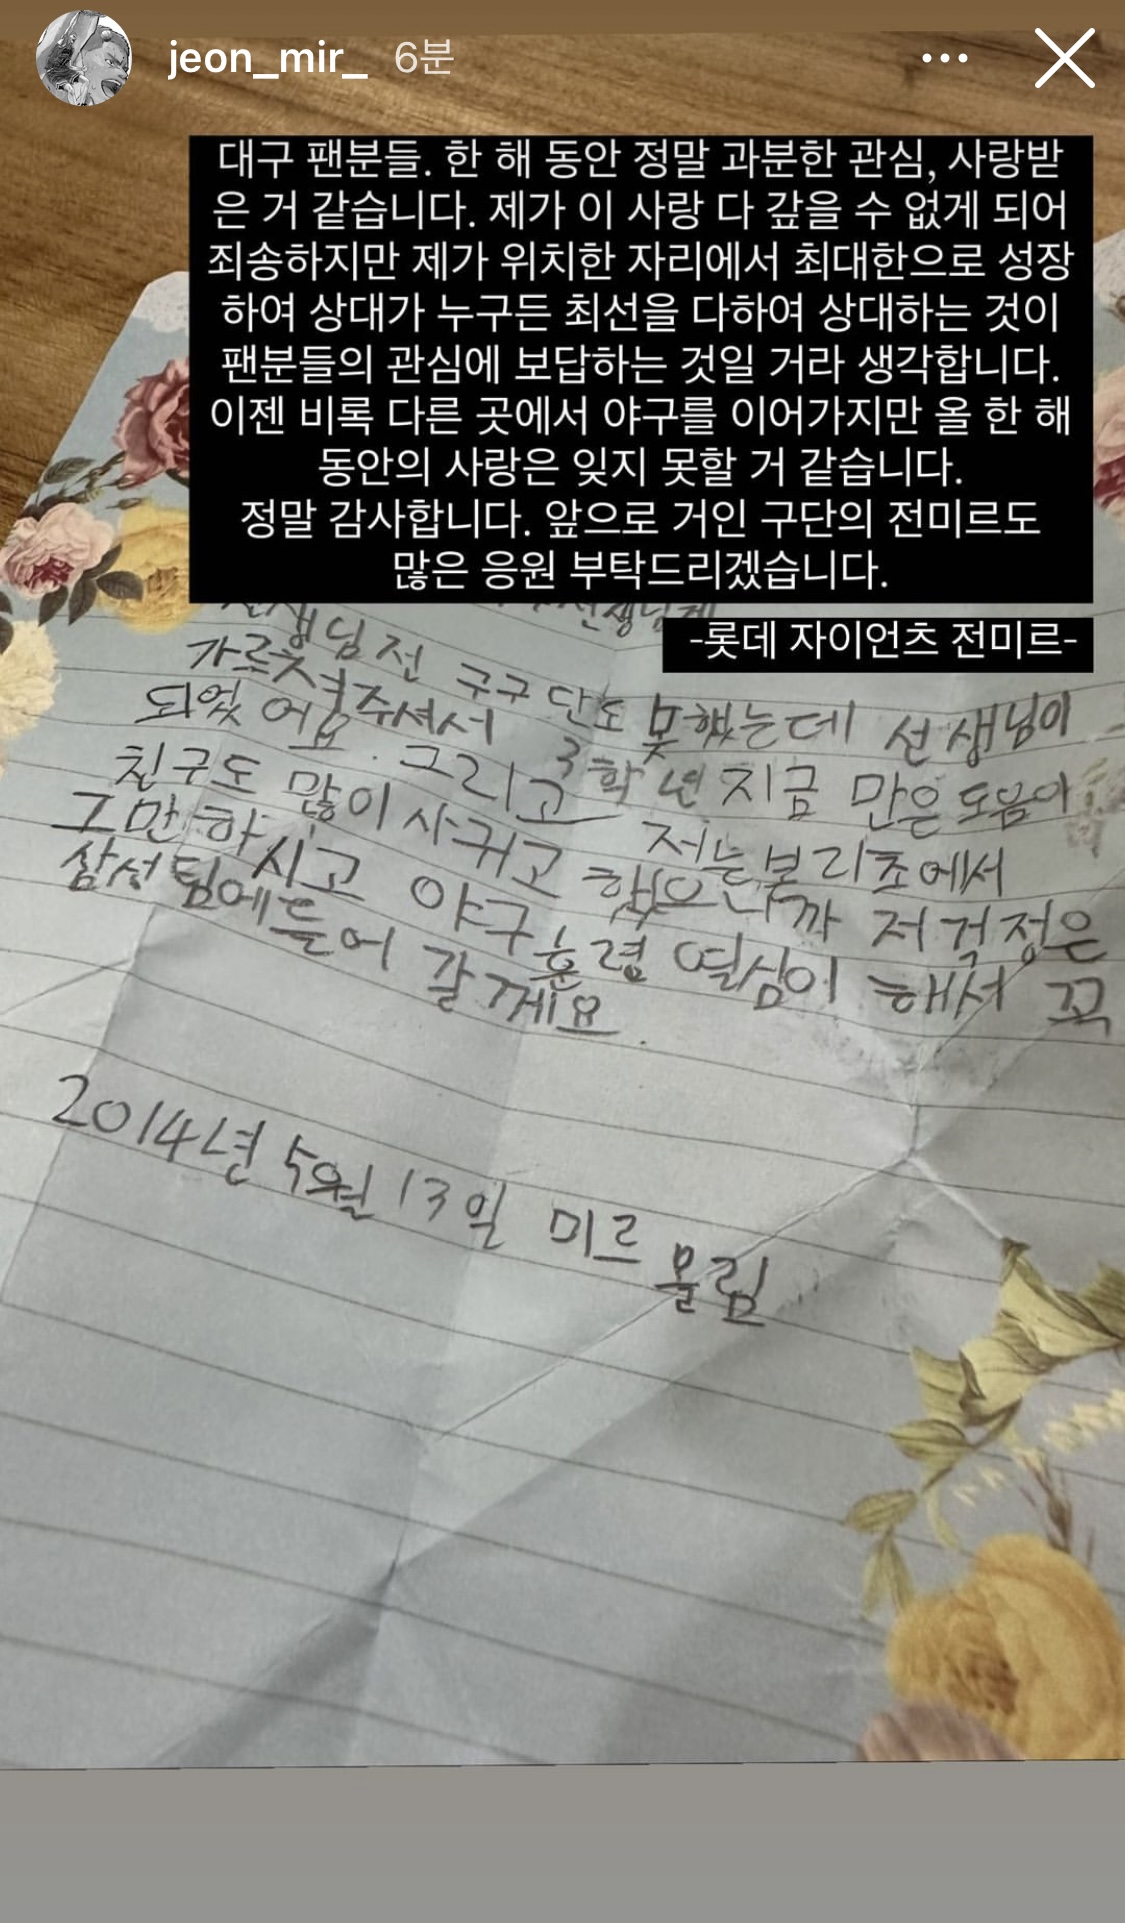 jeon_mir_ 6분
대구 팬분들. 한 해 동안 정말 과분한 관심, 사랑받
은 거 같습니다. 제가 이 사랑 다 갚을 수 없게 되어
죄송하지만 제가 위치한 자리에서 최대한으로 성장
하여 상대가 누구든 최선을 다하여 상대하는 것이
팬분들의 관심에 보답하는 것일 거라 생각합니다.
이젠 비록 다른 곳에서 야구를 이어가지만 올 한 해
동안의 사랑은 잊지 못할 거 같습니다.
정말 감사합니다. 앞으로 거인 구단의 전미르도
많은 응원 부탁드리겠습니다.
-롯데 자이언츠 전미르-
선생님께
선생님 전 구구단도 못했는데 선생님이
가르쳐주셔서 3학년 지금 만은 도움이
되었어요. 그리고 저는 본리초에서
친구도 많이 사귀고 했으니까 저 걱정은
그만하시고 야구 훈령 열심이 해서 꼭
삼성팀에 들어 갈게요.
2014년 5월 13일 미르 올림